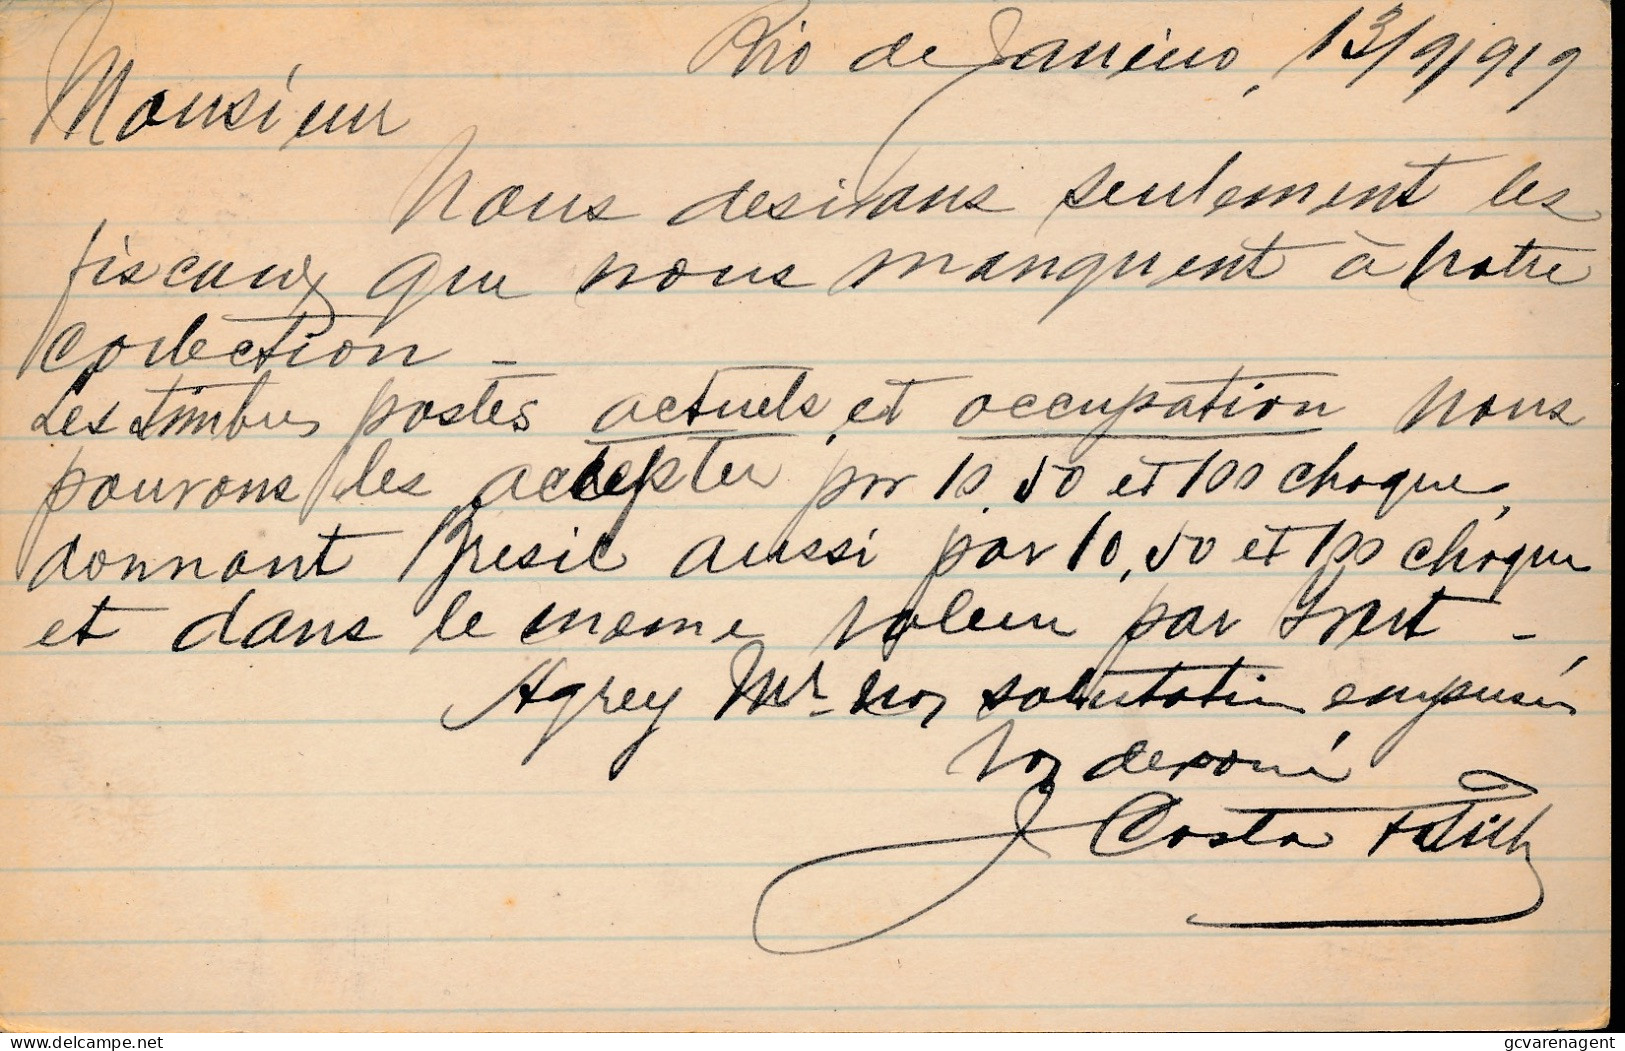 Rio de Janeiro, 13/9/919
Monsieur
Nous desirans seulement les
fiscaux que nous manquent à notre
collection _
Les timbres postes actuels et occupation nous
pouvons les accepter par 10, 50 et 100 chaque,
donnant Bresil aussi par 10, 50 et 100 chaque
et dans le meme valeur par Yvert _
Agrey Mr. nos salutation
Vos devoué
J Costa
Delcampe.net
gcvarenagent